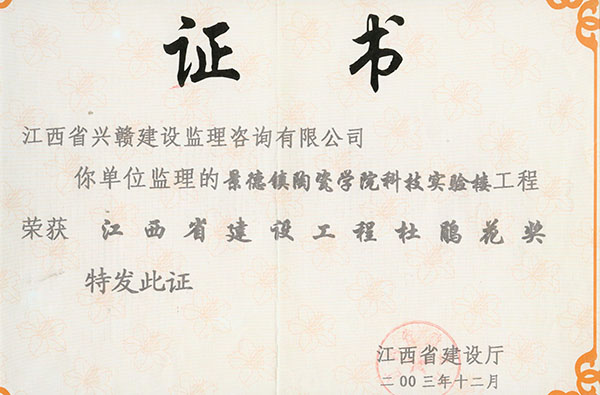 证书
江西省兴赣建设监理咨询有限公司
你单位监理的景德镇陶瓷学院科技实验楼工程
荣获 江西省建设工程杜鹃花奖
特发此证
江西省建设厅
二00三年十二月